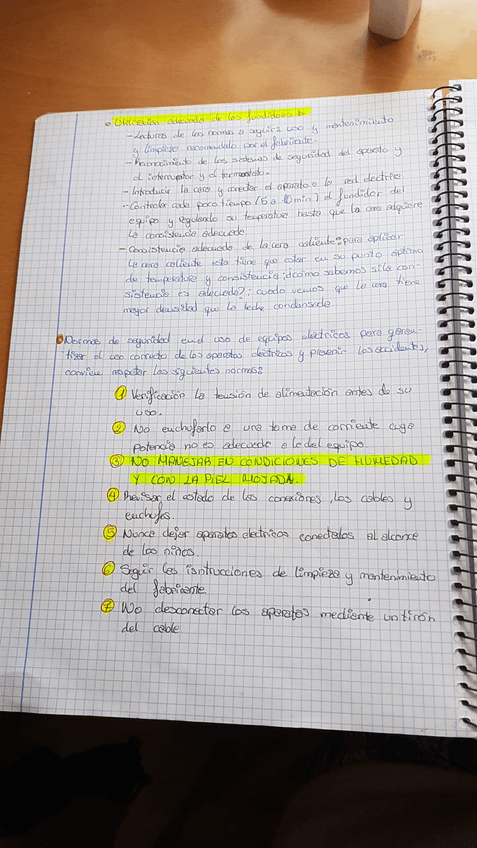 Utilización adecuada de los fundidores:
- Lectura de las normas a seguir: uso y mantenimiento
y limpieza recomendado por el fabricante.
- Reconocimiento de los sistemas de seguridad del aparato y
el interruptor y el termostato.
- Introducir la cera y conectar el aparato a la red electrica
- Controlar cada poco tiempo (5 a 10 min) el fundidor del
equipo y regulando su temperatura hasta que la cera adquiere
la consistencia adecuada
- Consistencia adecuada de la cera caliente: para aplicar
la cera caliente esta tiene que estar en su punto óptimo
de temperatura y consistencia ¿como sabemos si la con-
sistencia es adecuada?: cuado vemos que la cera tiene
mayor densidad que la leche condensada.
Normas de seguridad en el uso de equipos electricos para garan-
tizar el uso correcto de los aparatos electricos y prevenir los accidentes,
conviene respetar las siguientes normas:
1 Verificación la tensión de alimentación antes de su
uso.
2 No enchufarlo a una toma de corriente cuya
potencia no es adecuada a la del equipo.
3 NO MANEJAR EN CONDICIONES DE HUMEDAD
Y CON LA PIEL MOJADA.
4 Revisar el estado de las conexiones, los cables y
enchufes.
5 Nunca dejar aparatos electricos conectados al alcance
de los niños.
6 Seguir las instrucciones de limpieza y mantenimiento
del fabricante
7 No desconectar los aparatos mediante un tirón
del cable